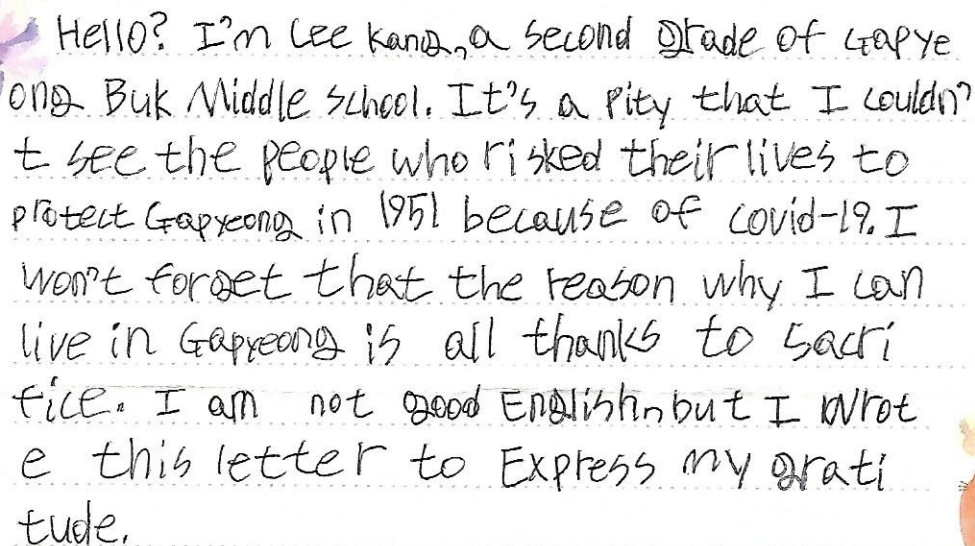 Hello? I'm Lee Kang, a second grade of Gapye
ong Buk Middle school. It's a pity that I couldn'
t see the people who risked their lives to
protect Gapyeong in 1951 because of covid-19. I
won't forget that the reason why I can
live in Gapyeong is all thanks to sacri
fice. I am not good English, but I wrot
e this letter to Express my grati
tude.